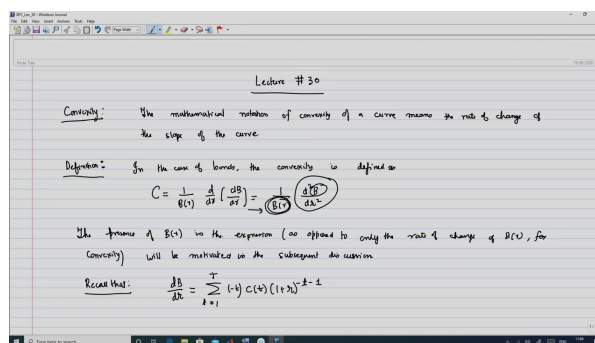 SPC_Lec_30 - Windows Journal
File Edit View Insert Actions Tools Help
Page Width
Note Title
Lecture #30
Convexity: The mathematical notation of convexity of a curve means the rate of change of
the slope of the curve
Definition: In the case of bonds, the convexity is defined as
C = 1/B(r) d/dr (dB/dr) = 1/B(r) d²B/dr²
The presence of B(r) in the expression (as opposed to only the rate of change of B(r), for
Convexity) will be motivated in the subsequent discussion
Recall that: dB/dr = Σ_{t=1}^{T} (-t) C(t) (1+r)^{-t-1}
Type here to search
ENG